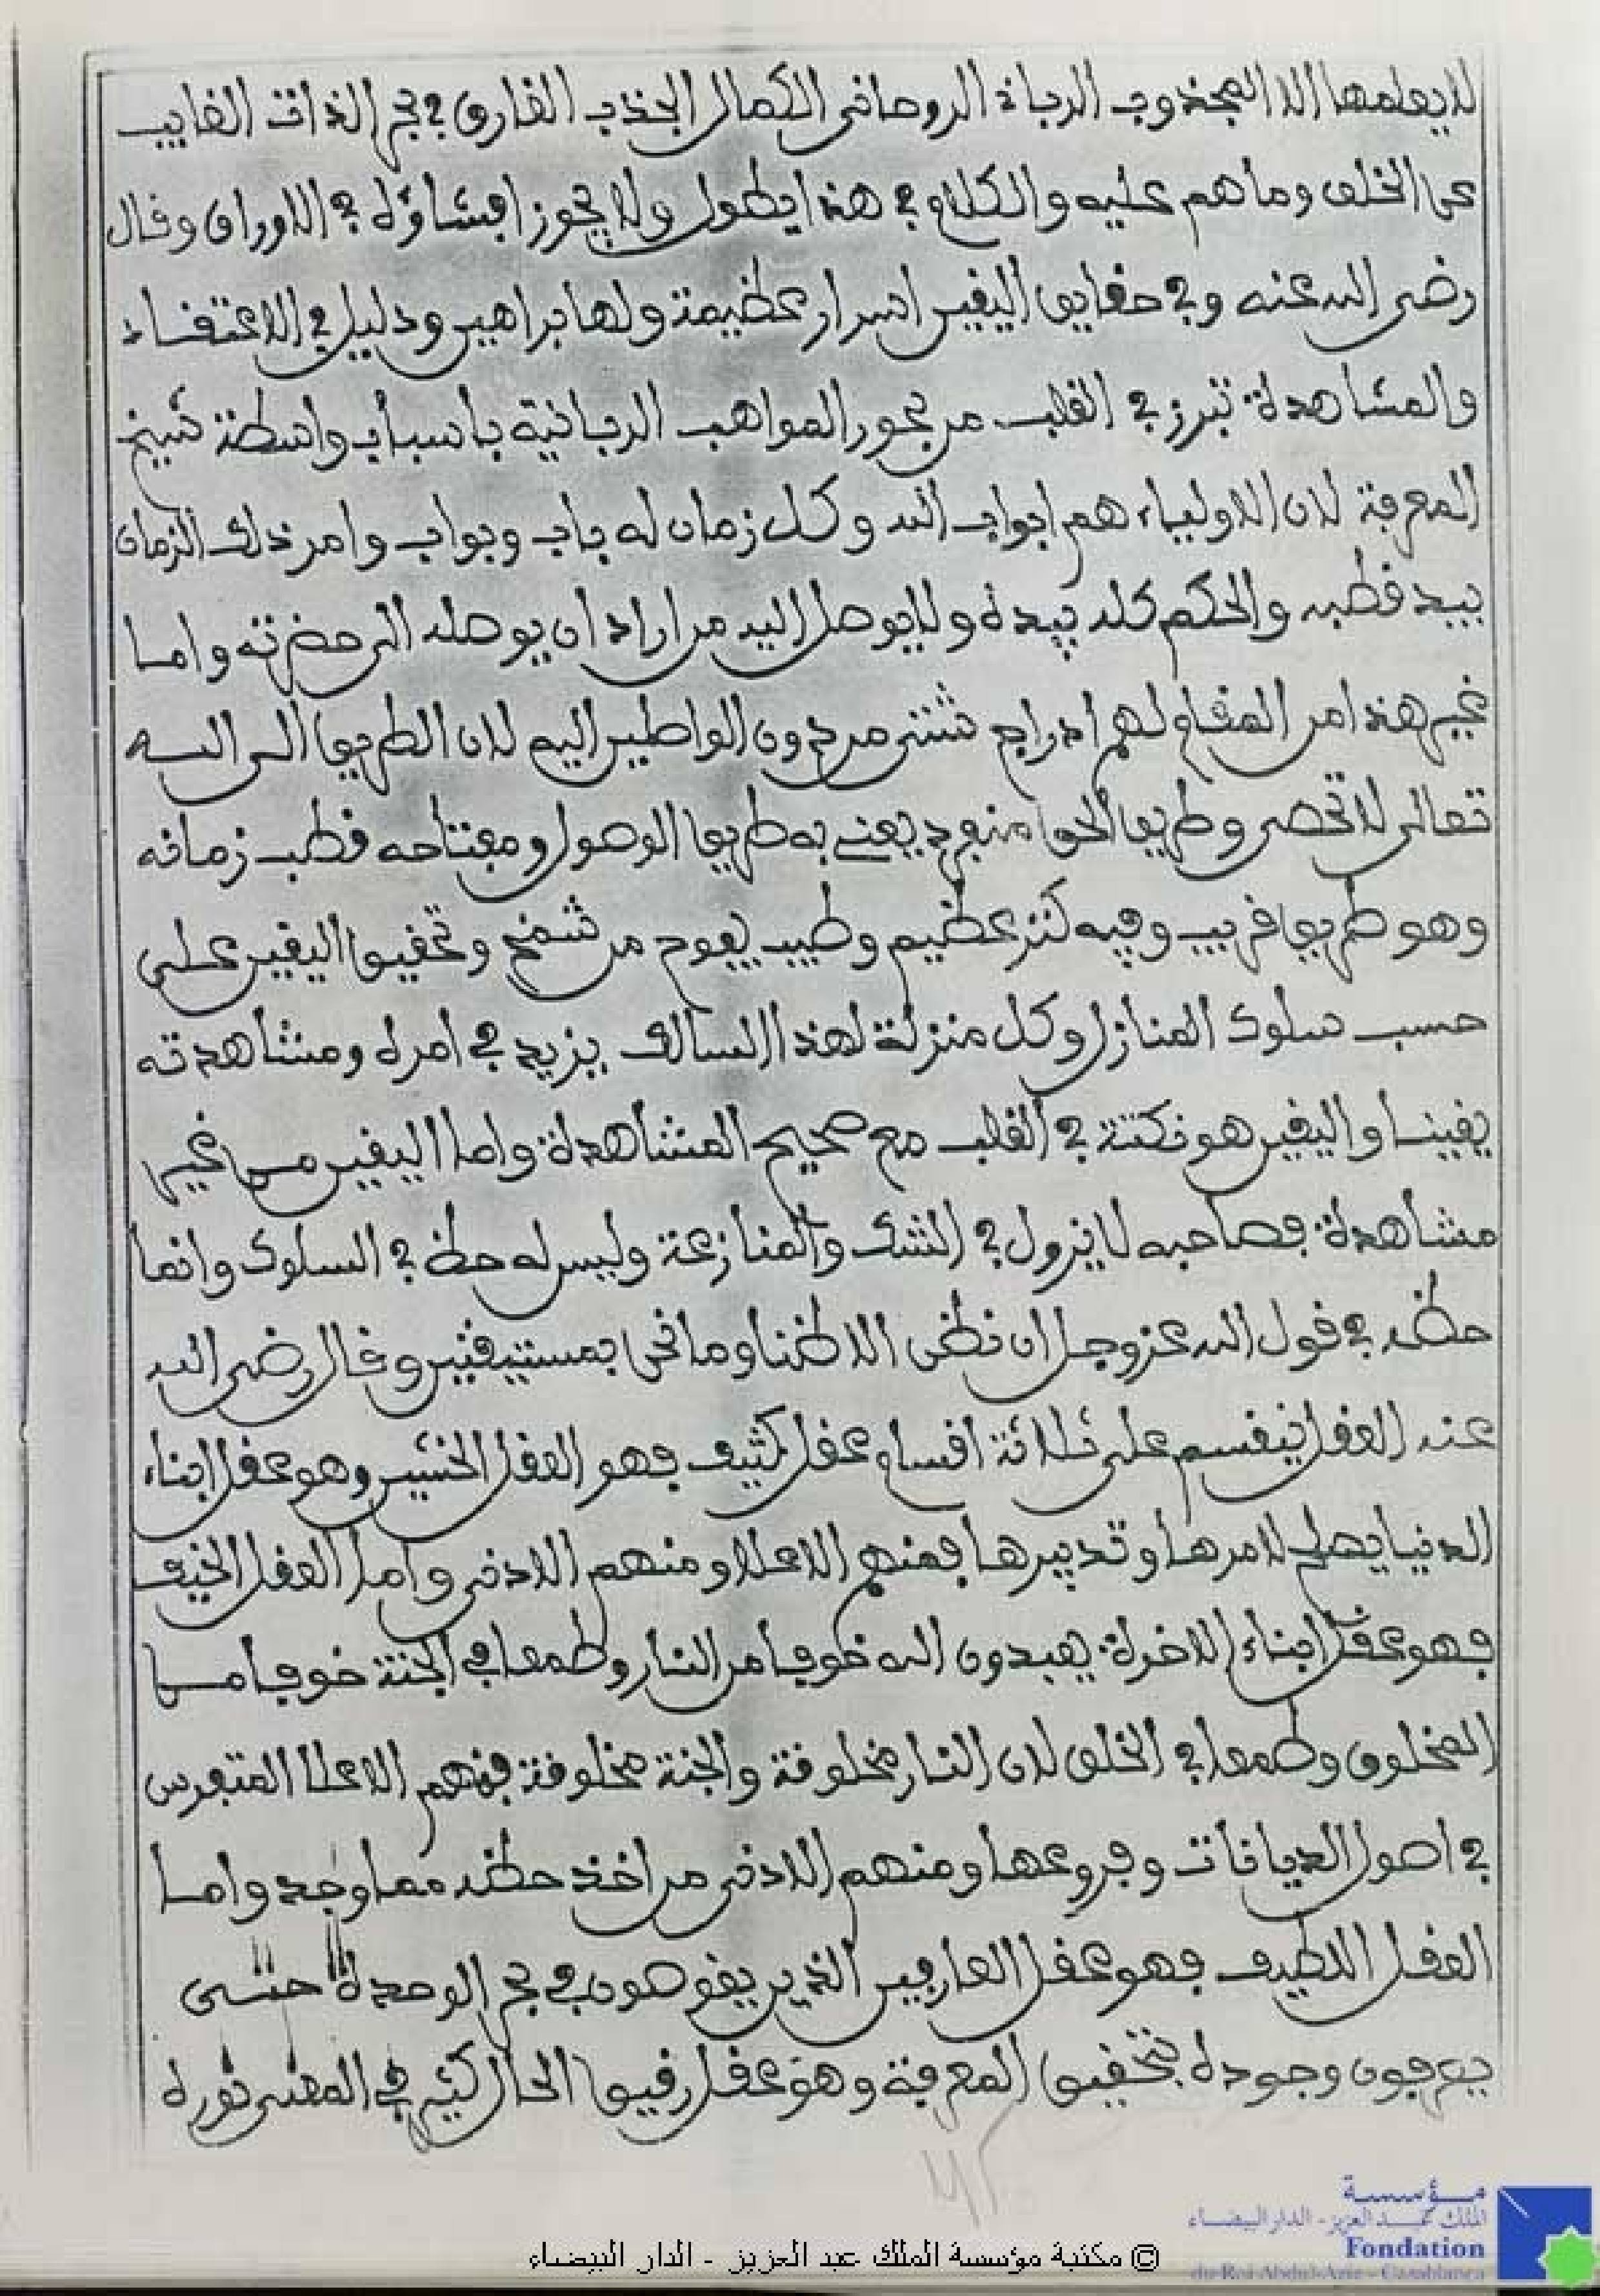 لا يعلمها الا المجذوب الرباني الروحاني الكمال الجذب الغارق في بحر الذات الغايب
عن الخلق وما هم عليه والكلام في هذا يطول ولا يجوز افشاؤه في الاوراق وقال
رضي الله عنه وفي حقايق اليقين اسرار عظيمة ولها براهين ودليل في الاعتقاد
والمشاهدة تبرز في القلب من بحور المواهب الربانية باسباب واسطة شيخ
المعرفة لان الاولياء هم ابواب الله وكل زمان له باب وبواب وامر ذلك الزمان
بيد قطبه والحكم كله بيده ولا يوصل اليه من اراد ان يوصله الى حضرته واما
غير هذا من المشا لهم ادراج شتى من دون الواصلين اليه لان الطريق الى الله
تعالى لا تحصر وطريق الحق منفرد يعني به طريق الوصول ومفتاحه قطب زمانه
وهو طريق قريب وفيه كنز عظيم وطيب يفوح من شمخ وتحقيق اليقين على
حسب سلوك المنازل وكل منزلة لهذا السالك يزيد في امره ومشاهدته
يقينا واليقين هو نكتة في القلب مع صحيح المشاهدة واما اليقين من غير
مشاهدة فصاحبه لا يزول في الشك والمنازعة وليس له حظ في السلوك وانما
حظه في قول الله عز وجل ان نظن الا ظنا وما نحن بمستيقنين وقال رضي الله
عنه العقل ينقسم على ثلاثة اقسام عقل كثيف فهو العقل الخشين وهو عقل ابناء
الدنيا يصلح لامرها وتدبيرها فمنهم الاعلا ومنهم الادنى واما العقل الخيف
فهو عقل ابناء الاخرة يعبدون الله خوفا من النار وطمعا في الجنة خوفا من
المخلوق وطمعا في الخلق لان النار مخلوقة والجنة مخلوقة فمنهم الاعلا المتفرس
في اصول الديانات وفروعها ومنهم الادنى من اخذ حظه مما وجد واما
العقل اللطيف فهو عقل العارفين الذين يغوصون في بحر الوحدة حتى
يعرفون وجوده بتحقيق المعرفة وهو عقل رقيق الحال كثير في المعنى نوره
مؤسسة
الملك عبد العزيز - الدار البيضاء
Fondation
du Roi Abdul-Aziz - Casablanca
© مكتبة مؤسسة الملك عبد العزيز - الدار البيضاء